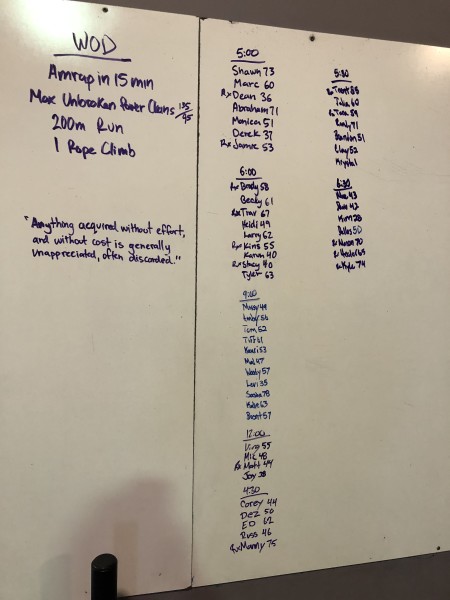 WOD
Amrap in 15 min
Max Unbroken Power Cleans 135/95
200m Run
1 Rope Climb
"Anything acquired without effort,
and without cost is generally
unappreciated, often discarded."
5:00
Shawn 73
Marc 60
Rx Dean 36
Abraham 71
Monica 51
Derek 37
Rx Jamie 53
6:00
Rx Brody 58
Becky 61
Rx Trav 67
Heidi 49
Larry 62
Rx Kris 55
Karen 40
Rx Stacy 40
Tyler 63
9:00
Missy
Tom 52
Tiff 61
53
47
Wendy 57
Levi 35
Sasha 78
63
Brent 57
12:00
Virg 55
Mic 48
Rx Matt 44
Joy 38
4:30
Corey 44
Dez 50
ED 62
Russ 46
Rx Manny 75
5:30
Rx Trent 86
60
Rx
71
Brandon 51
Clay 52
Krystal
6:30
43
42
Kim 28
50
70
65
Rx Kyle 74